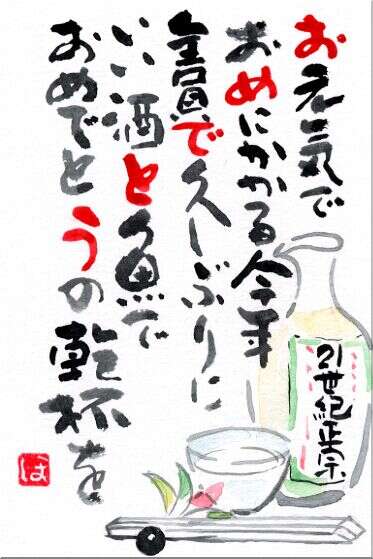 お元気で
おめにかかる今年
全員で久しぶりに
いい酒と魚で
おめでとうの乾杯を
21世紀正宗
は